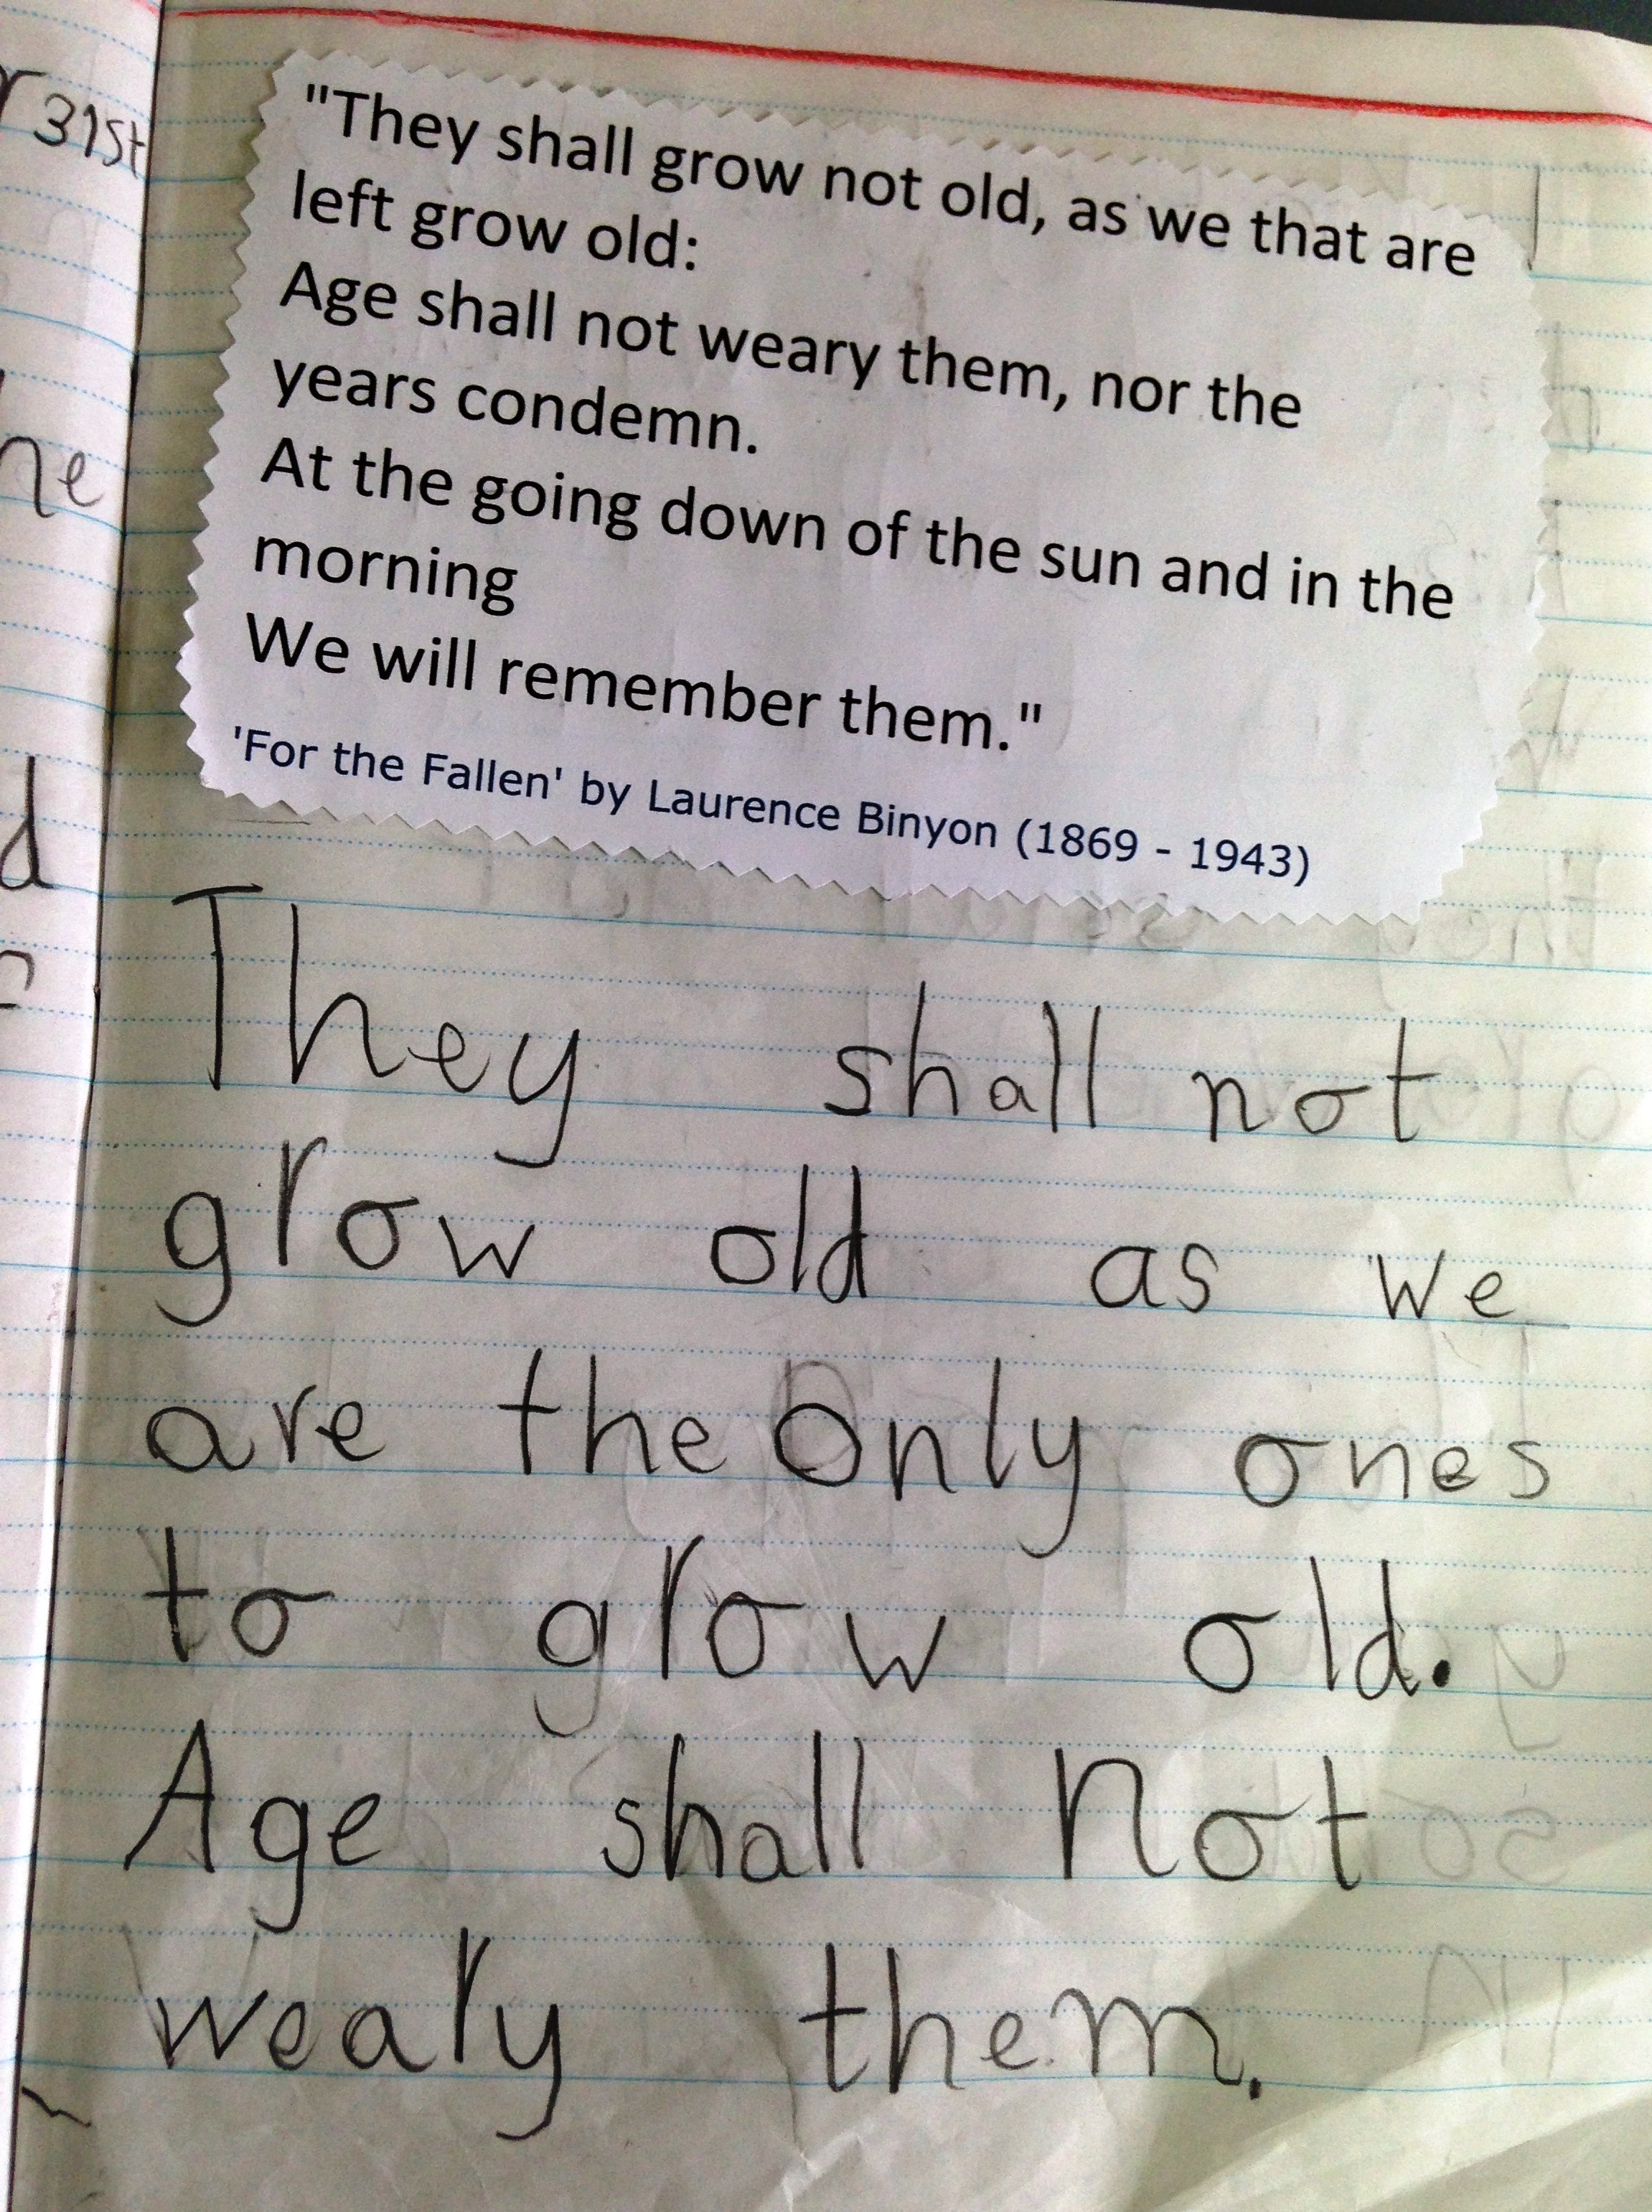 "They shall grow not old, as we that are
left grow old:
Age shall not weary them, nor the
years condemn.
At the going down of the sun and in the
morning
We will remember them."
'For the Fallen' by Laurence Binyon (1869 - 1943)
They shall not
grow old as we
are the only ones
to grow old.
Age shall not
weary them.
31st
he
d